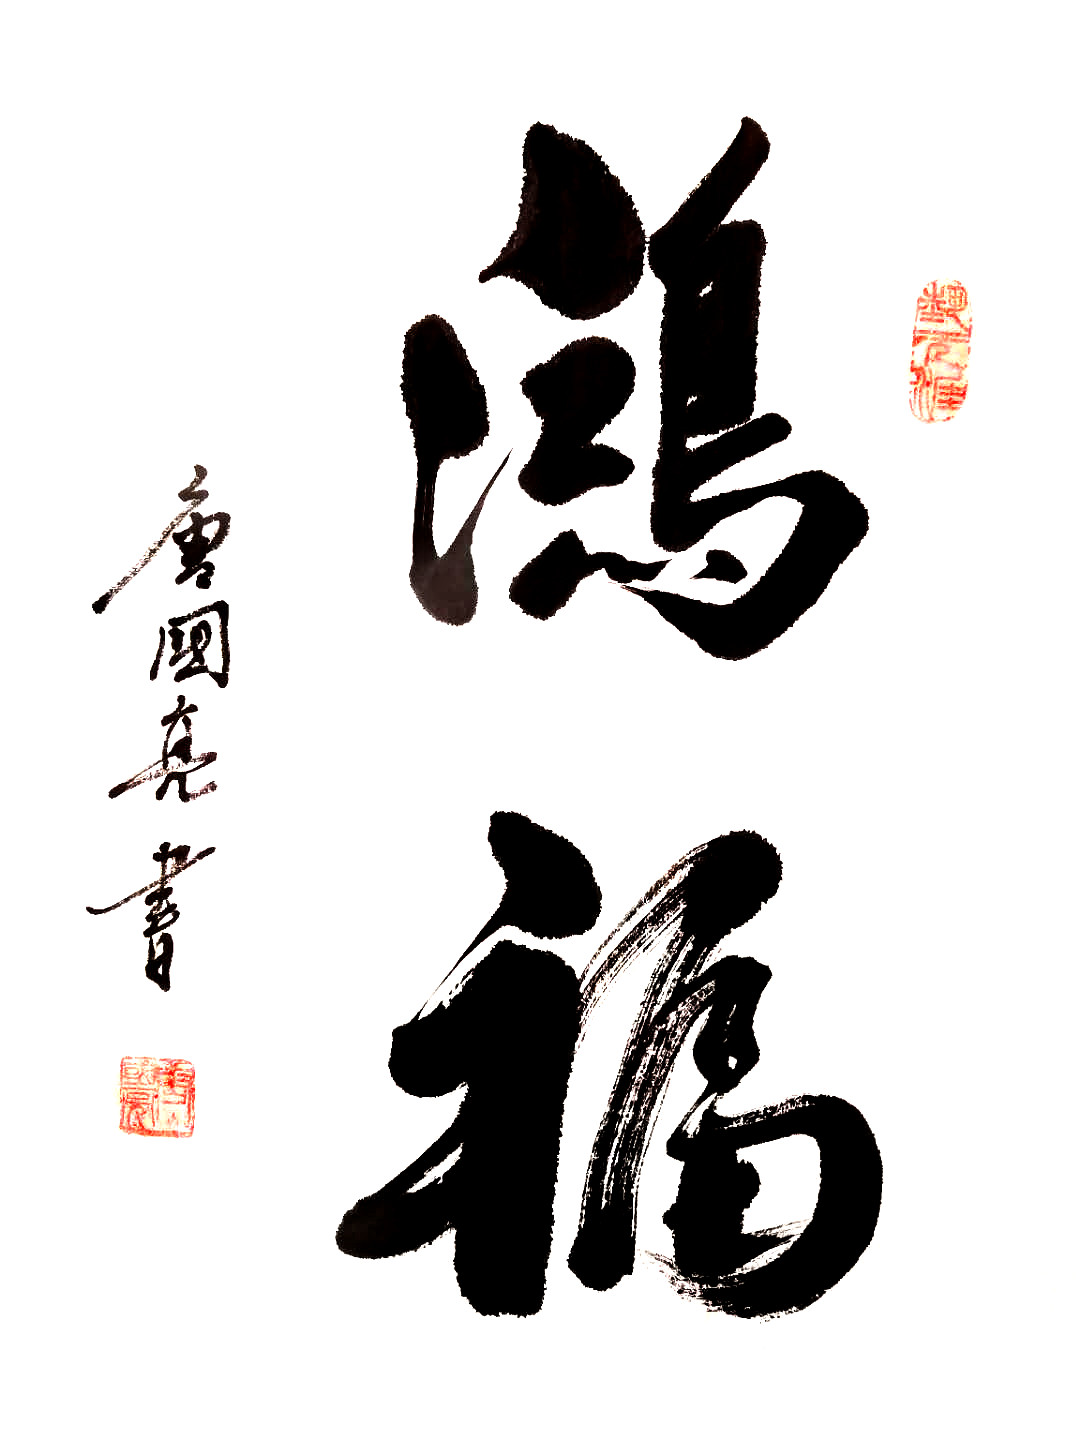 鴻福
唐國亮書